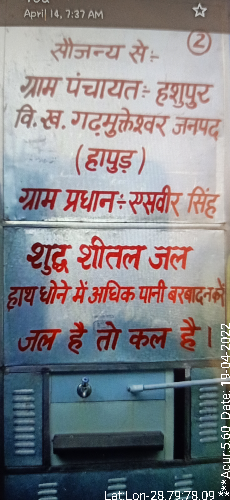 April 14, 7:37 AM
2
सौजन्य से :-
ग्राम पंचायत :- हशुपुर
वि.ख. गढ़मुक्तेश्वर जनपद
(हापुड़)
ग्राम प्रधान :- एसवीर सिंह
शुद्ध शीतल जल
हाथ धोने में अधिक पानी बरबाद न करें
जल है तो कल है।
Lat Lon-28.79:78.09
***Acur:5.60 Date: 19-04-2022